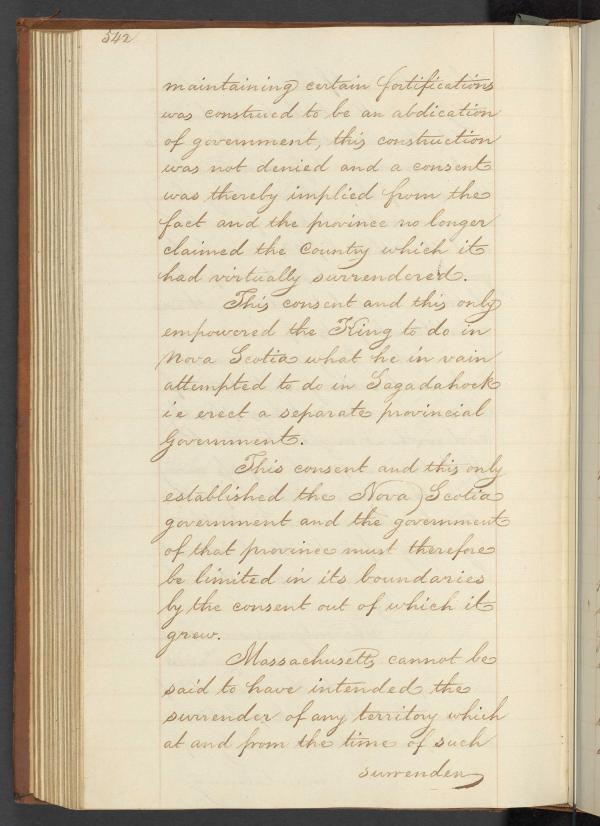 542
maintaining certain fortifications
was construed to be an abdication
of government, this construction
was not denied and a consent
was thereby implied from the
fact and the province no longer
claimed the Country which it
had virtually surrendered.
This consent and this only
empowered the King to do in
Nova Scotia what he in vain
attempted to do in Sagadahock
i e erect a separate provincial
Government.
This consent and this only
established the Nova Scotia
government and the government
of that province must therefore
be limited in its boundaries
by the consent out of which it
grew.
Massachusetts cannot be
said to have intended the
surrender of any territory which
at and from the time of such
surrender